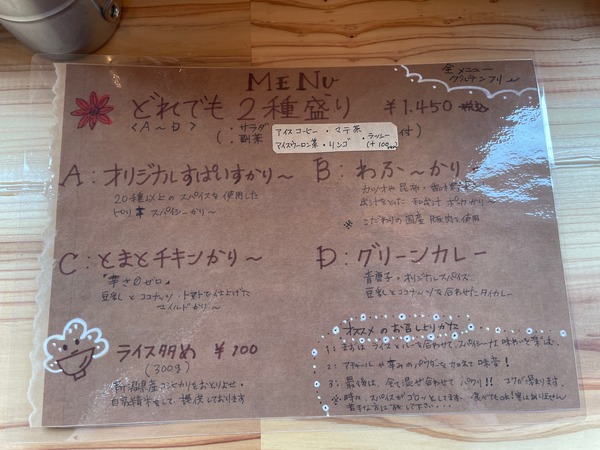 MENU
全メニュー
グルテンフリー
どれでも2種盛り ¥1,450 税込
<A～D>
(・サラダ
・副菜
付)
アイスコーヒー・マテ茶
アイスウーロン茶・リンゴ・ラッシー
(+100円)
A:オリジナルすぱいすかり～
20種以上のスパイスを使用した
トロリ辛スパイシーかり～
B:わふ～かり
カツオや昆布・
出汁をとった和出汁ポークかり～
※こだわりの国産豚肉を使用
C:とまとチキンかり～
『辛さゼロ』
豆乳とココナッツ・トマトで仕上げた
マイルドかり～
D:グリーンカレー
青唐子・オリジナルスパイス
豆乳とココナッツを合わせたタイカレー
ライス大盛め ¥100
(300g)
新潟県産コシヒカリをおとりよせ・
自家精米をして、提供しております
オススメのお召し上りかた
1:まずはライスとルーを合わせて、スパイシーな味わいを楽しむ。
2:アチャールや辛みのパウダーを加えて味変!
3:最後は、全て混ぜ合わせてパクリ!! コクが増します。
※時々、スパイスがゴロッとしてます。食べてもOK!
苦手な方は残して下さい...